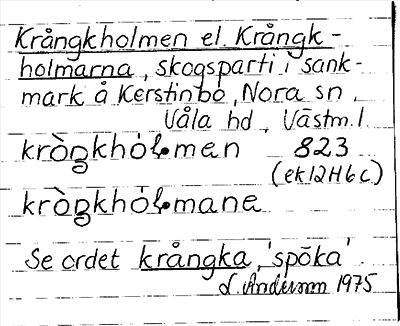 Krångkholmen el. Krångk-
holmarna, skogsparti i sank-
mark å Kerstinbo, Nora sn,
Våla hd, Västm. l.
kròŋkhólmen 823
(ek 12H6c)
kròŋkhólmane
Se ordet krångka, 'spöka'.
L. Andersson 1975